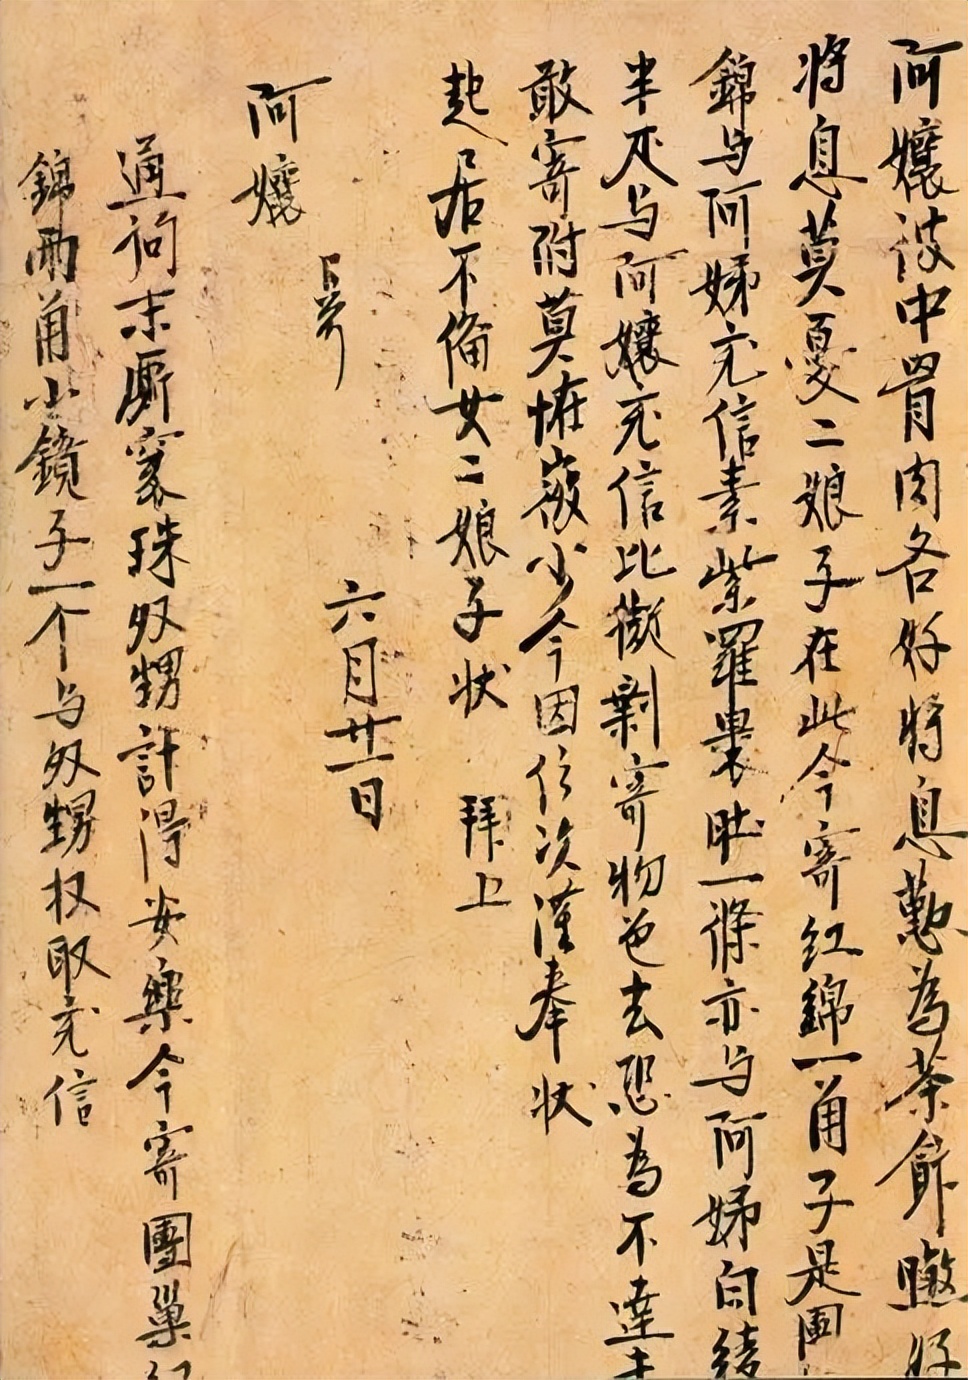 阿孃彼中骨肉各好将息懃為茶飰好
将息莫憂二娘子在此今寄红錦一角子是團
錦与阿姊充信素紫羅裹肚一條亦与阿姊白綾
半疋与阿孃充信比擬剩寄物色去恐為不達未
敢寄附莫恠微少今因信次謹奉状
起居不俻女二娘子状 拜上
六月廿一日
阿孃
通詢末厮褁珠奴甥計得安樂今寄團巢红
錦两角小鏡子一个与奴甥收取充信